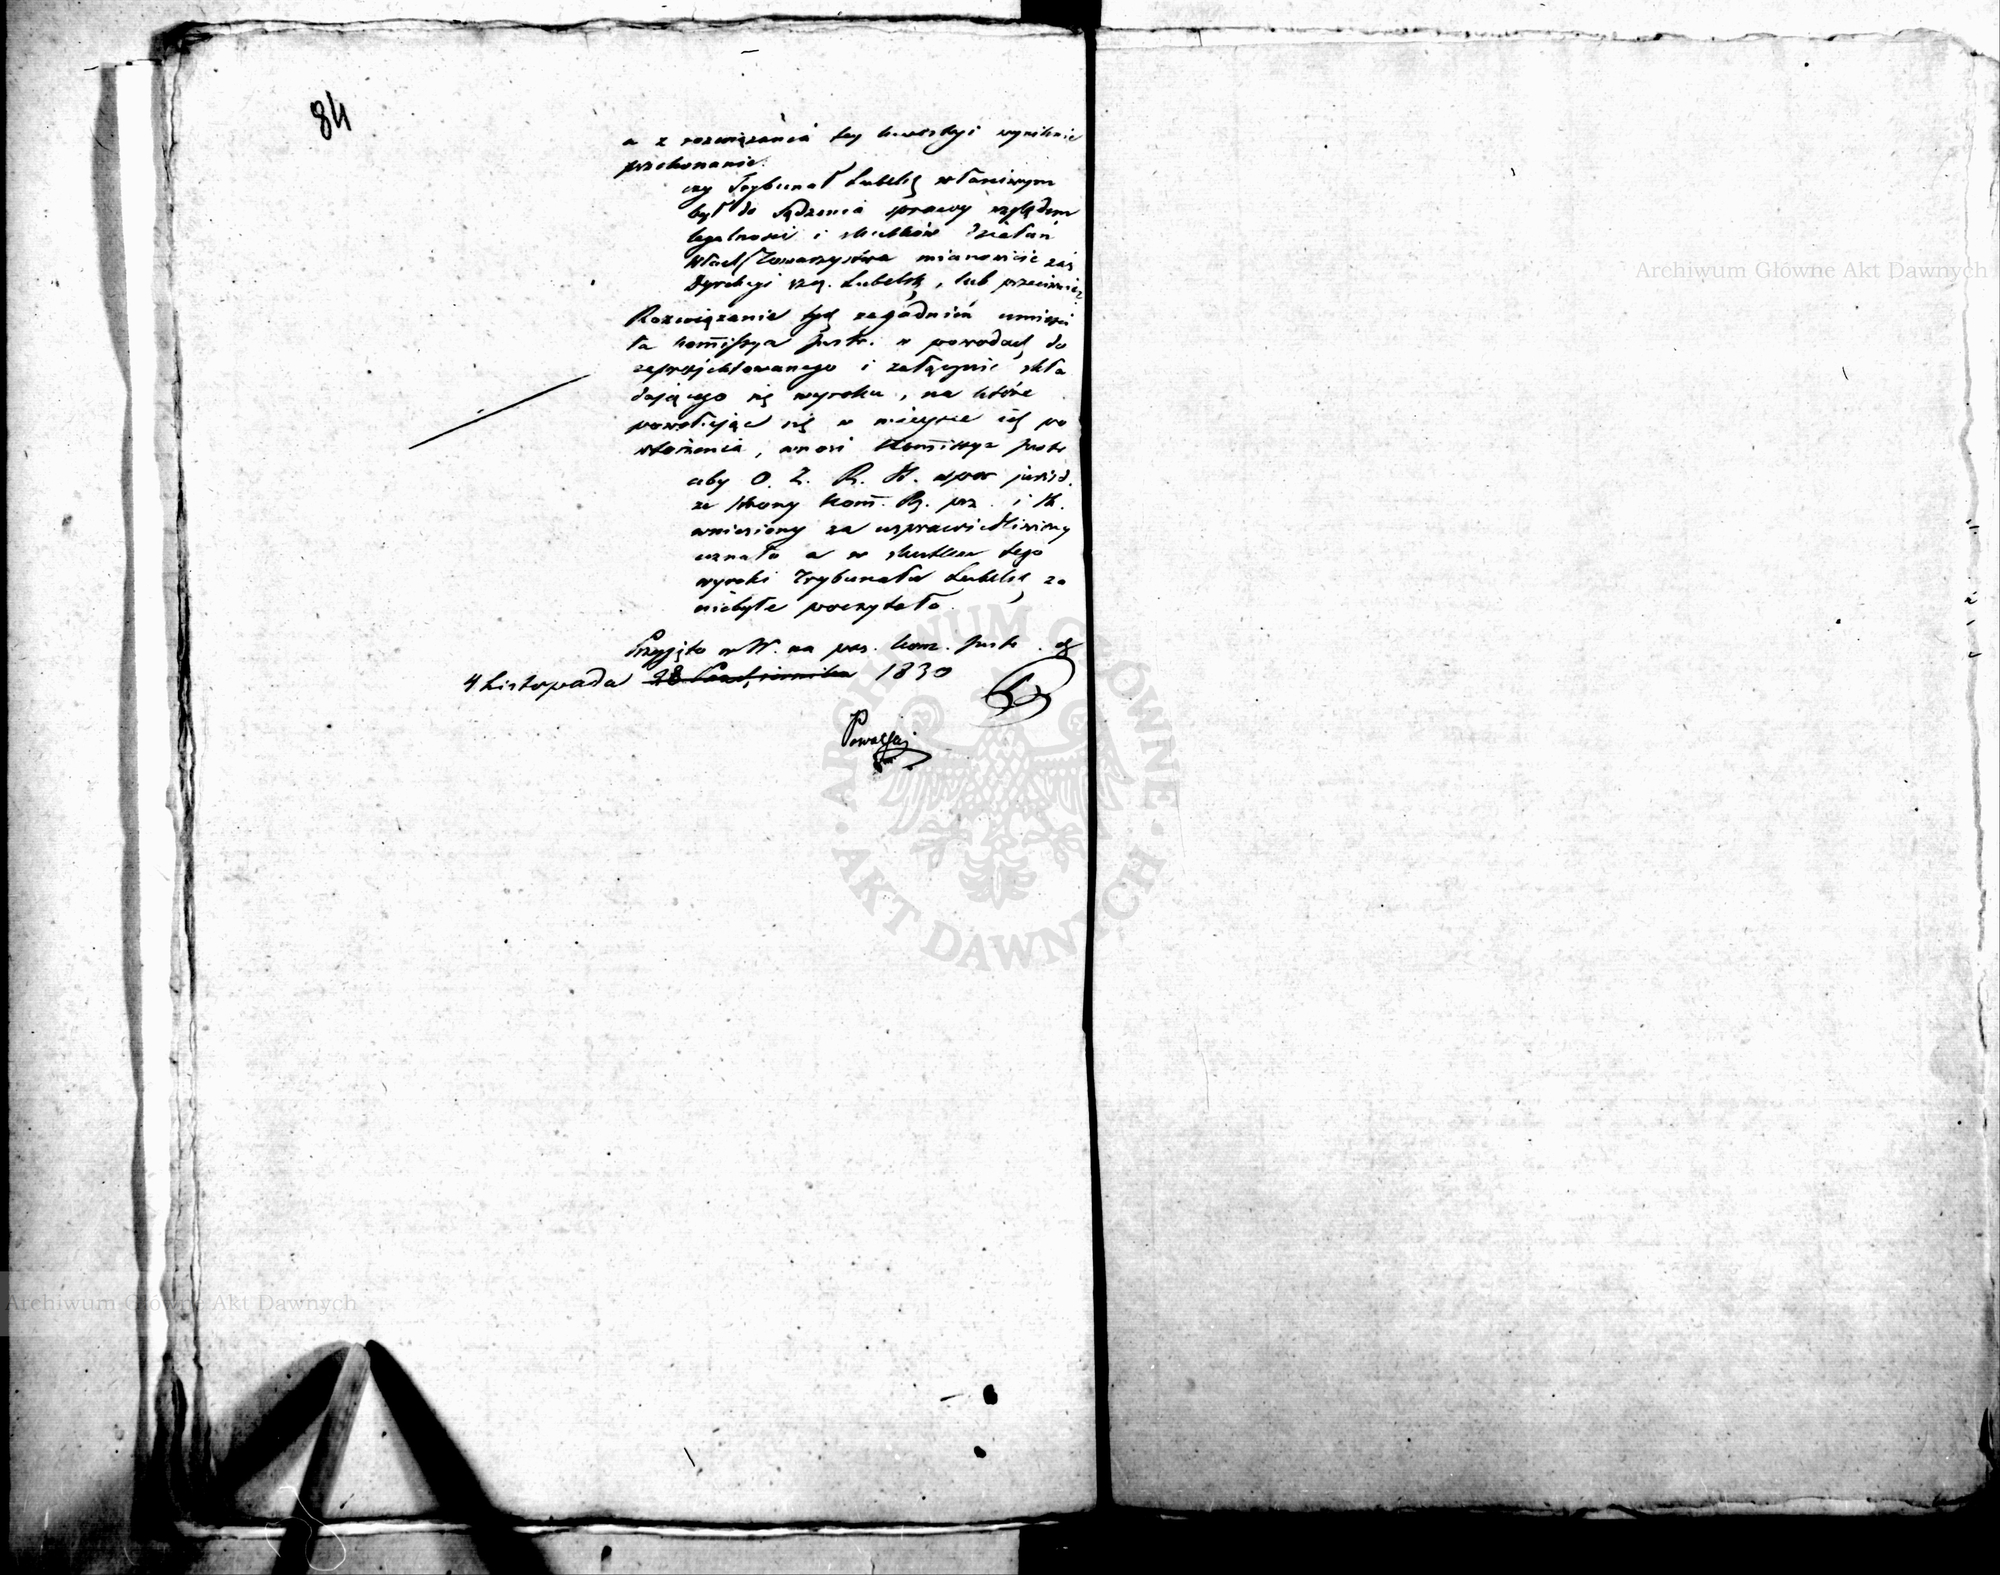 84
a z rozwiązania tey kwestyi wyniknie
przekonanie:
czy Trybunał Lubelsk właściwym
był do sądzenia sprawy względem
legalności i skutków działań
Władz Towarzystwa mianowicie zaś
Dyrekcyi szcz. Lubelsk, lub przeciwnie,
Rozwiązanie tych zagadnień umieści
ła Kommissya Just. w powodach do
zaprojektowanego i załącznie skła
dającego się wyroku, na które
powołując się w mieysce ich po
wtórzenia, wnosi Kommissya Just
aby O. Z. R. St. spor jurisd.
ze strony Kom. Rz. prz. i Sk.
wniesiony za usprawiedliwiony
uznało a w skutku tego
wyroki Trybunału Lubelsk za
niebyłe poczytało.
Przyjęto w W. na pos. Kom. Just.
4 Listopada 28 Października 1830
Archiwum Główne Akt Dawnych
ARCHIWUM GŁÓWNE AKT DAWNYCH
Archiwum Główne Akt Dawnych